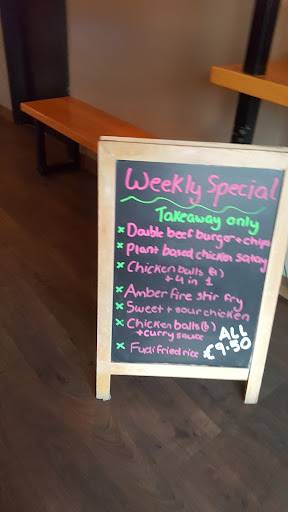 Weekly Special
Takeaway only
x Double beef burger + chips
x Plant based chicken satay
x Chicken balls (4)
+ 4 in 1
x Amber fire stir fry
x Sweet + sour chicken
x Chicken balls (6)
+ curry sauce
x Fudi fried rice
ALL
€9.50